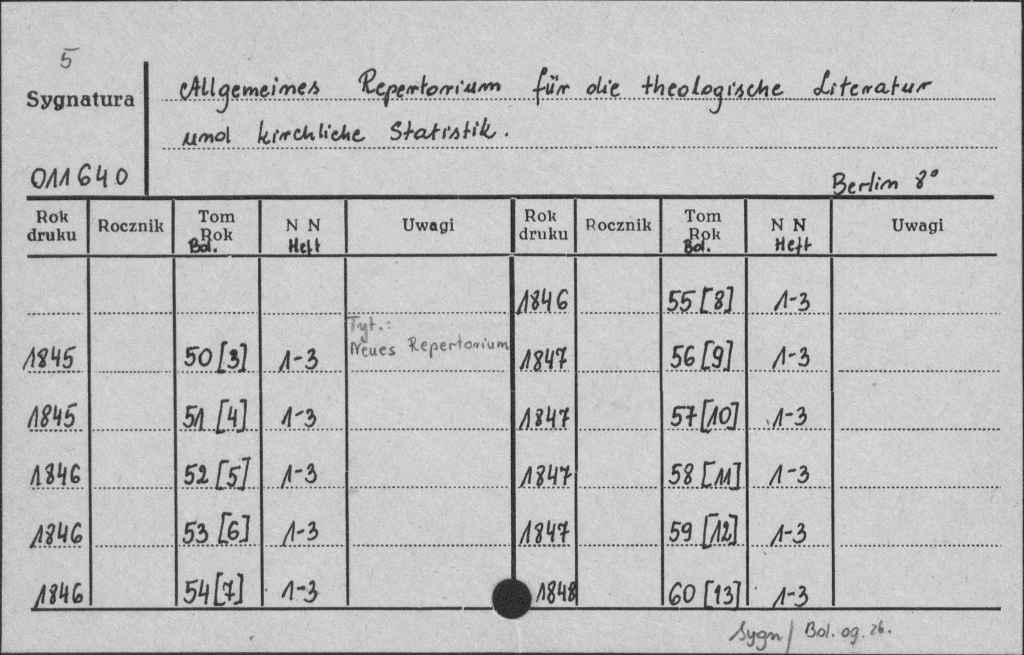 5
Sygnatura
Allgemeines Repertorium für die theologische Literatur
und kirchliche Statistik.
011640
Berlin 8°
Rok druku Rocznik Tom Rok Bd. N N Heft Uwagi Rok druku Rocznik Tom Rok Bd. N N Heft Uwagi
1846 55 [8] 1-3
Tyt.:
1845 50 [3] 1-3 Neues Repertorium 1847 56 [9] 1-3
1845 51 [4] 1-3 1847 57 [10] 1-3
1846 52 [5] 1-3 1847 58 [11] 1-3
1846 53 [6] 1-3 1847 59 [12] 1-3
1846 54 [7] 1-3 1848 60 [13] 1-3
Sygn/ Bd. og. 26.